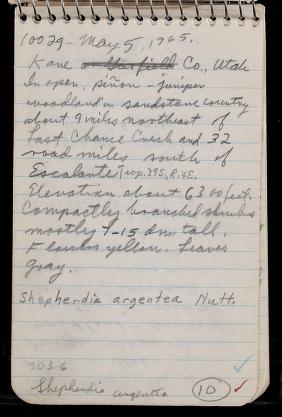 10029 - May 5, 1965.
Kane or Garfield Co., Utah
In open, piñon - juniper
woodland in sandstone country
about 9 miles northeast of
Last Chance Creek and 32
road miles south of
Escalante, Twp. 39S, R. 4E.
Elevation about 6300 feet.
Compactly branched shrubs
mostly 9-15 dm. tall.
Flowers yellow. Leaves
gray.
Shepherdia argentea Nutt.
7036
Shepherdia argentea 10